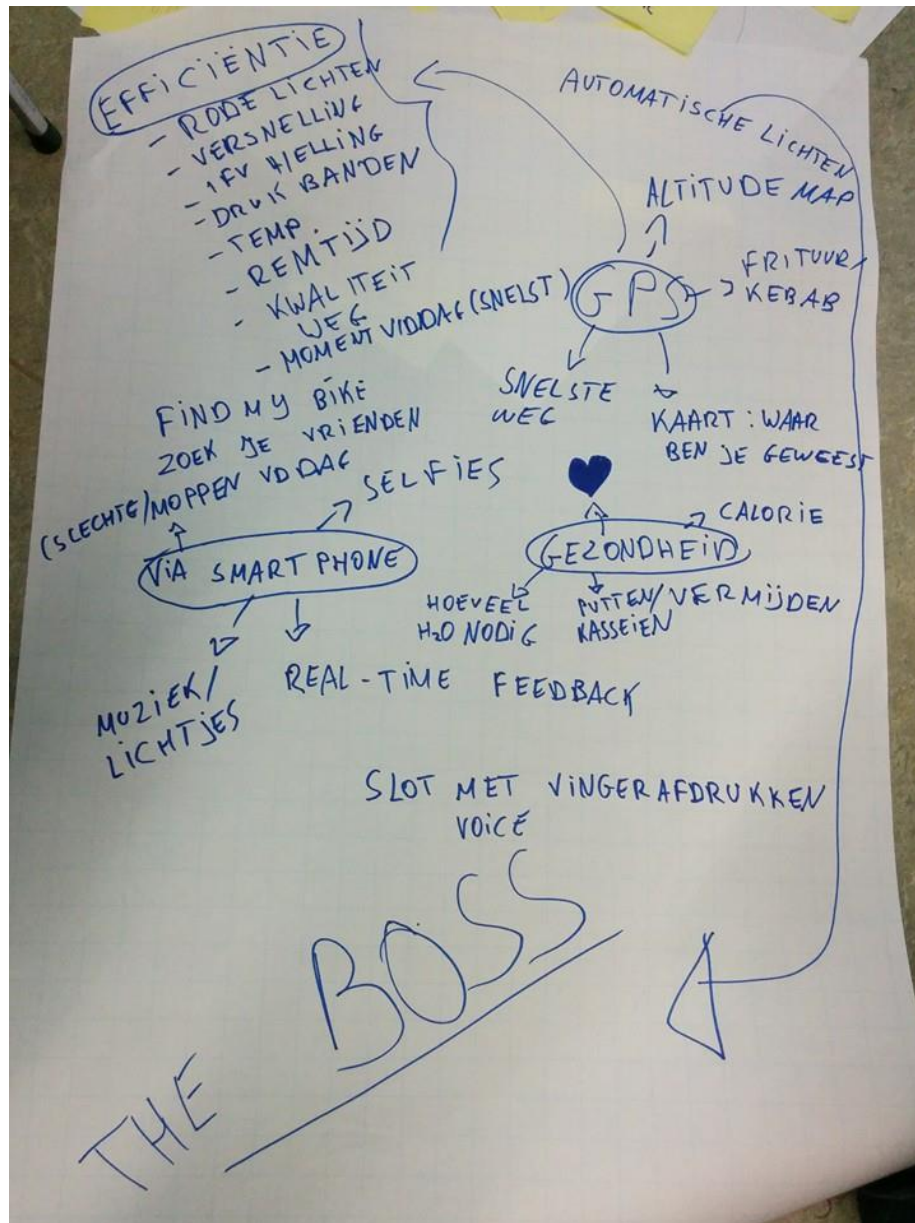 EFFICIËNTIE
- RODE LICHTEN
- VERSNELLING
- IFV HELLING
- DRUK BANDEN
- TEMP.
- REMTIJD
- KWALITEIT
WEG
- MOMENT V/D DAG (SNELST)
AUTOMATISCHE LICHTEN
ALTITUDE MAP
GPS
FRITUUR/
KEBAB
SNELSTE
WEG
KAART : WAAR
BEN JE GEWEEST
FIND MY BIKE
ZOEK JE VRIENDEN
(SLECHTE/MOPPEN VD DAG
SELFIES
VIA SMARTPHONE
MUZIEK/
LICHTJES
REAL-TIME FEEDBACK
GEZONDHEID
CALORIE
HOEVEEL
H2O NODIG
PUTTEN/VERMIJDEN
KASSEIEN
SLOT MET VINGERAFDRUKKEN
VOICE
THE BOSS